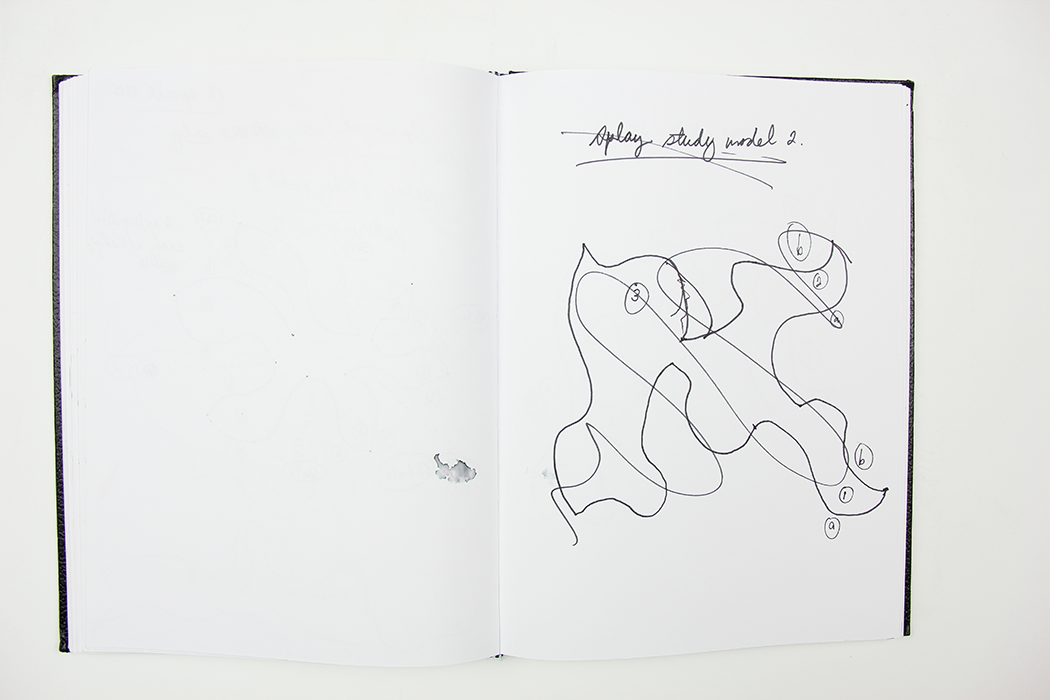 Splay study model 2.
b
2
3
a
b
1
a